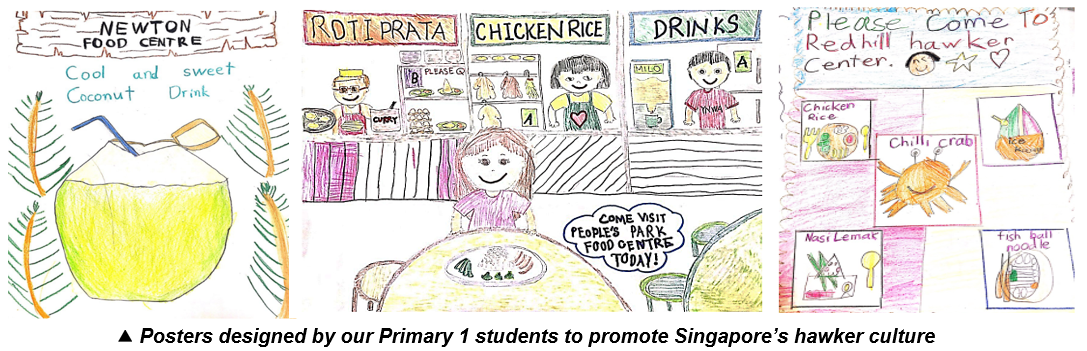 NEWTON
FOOD CENTRE
Cool and sweet
Coconut Drink
ROTI PRATA
CHICKEN RICE
DRINKS
B
PLEASE Q
CURRY
A
MILO
A
YNWA
COME VISIT
PEOPLE'S PARK
FOOD CENTRE
TODAY!
Please Come To
Redhill hawker
Center.
Chicken
Rice
Chilli crab
Ice
Nasi Lemak
fish ball
noodle
▲ Posters designed by our Primary 1 students to promote Singapore's hawker culture